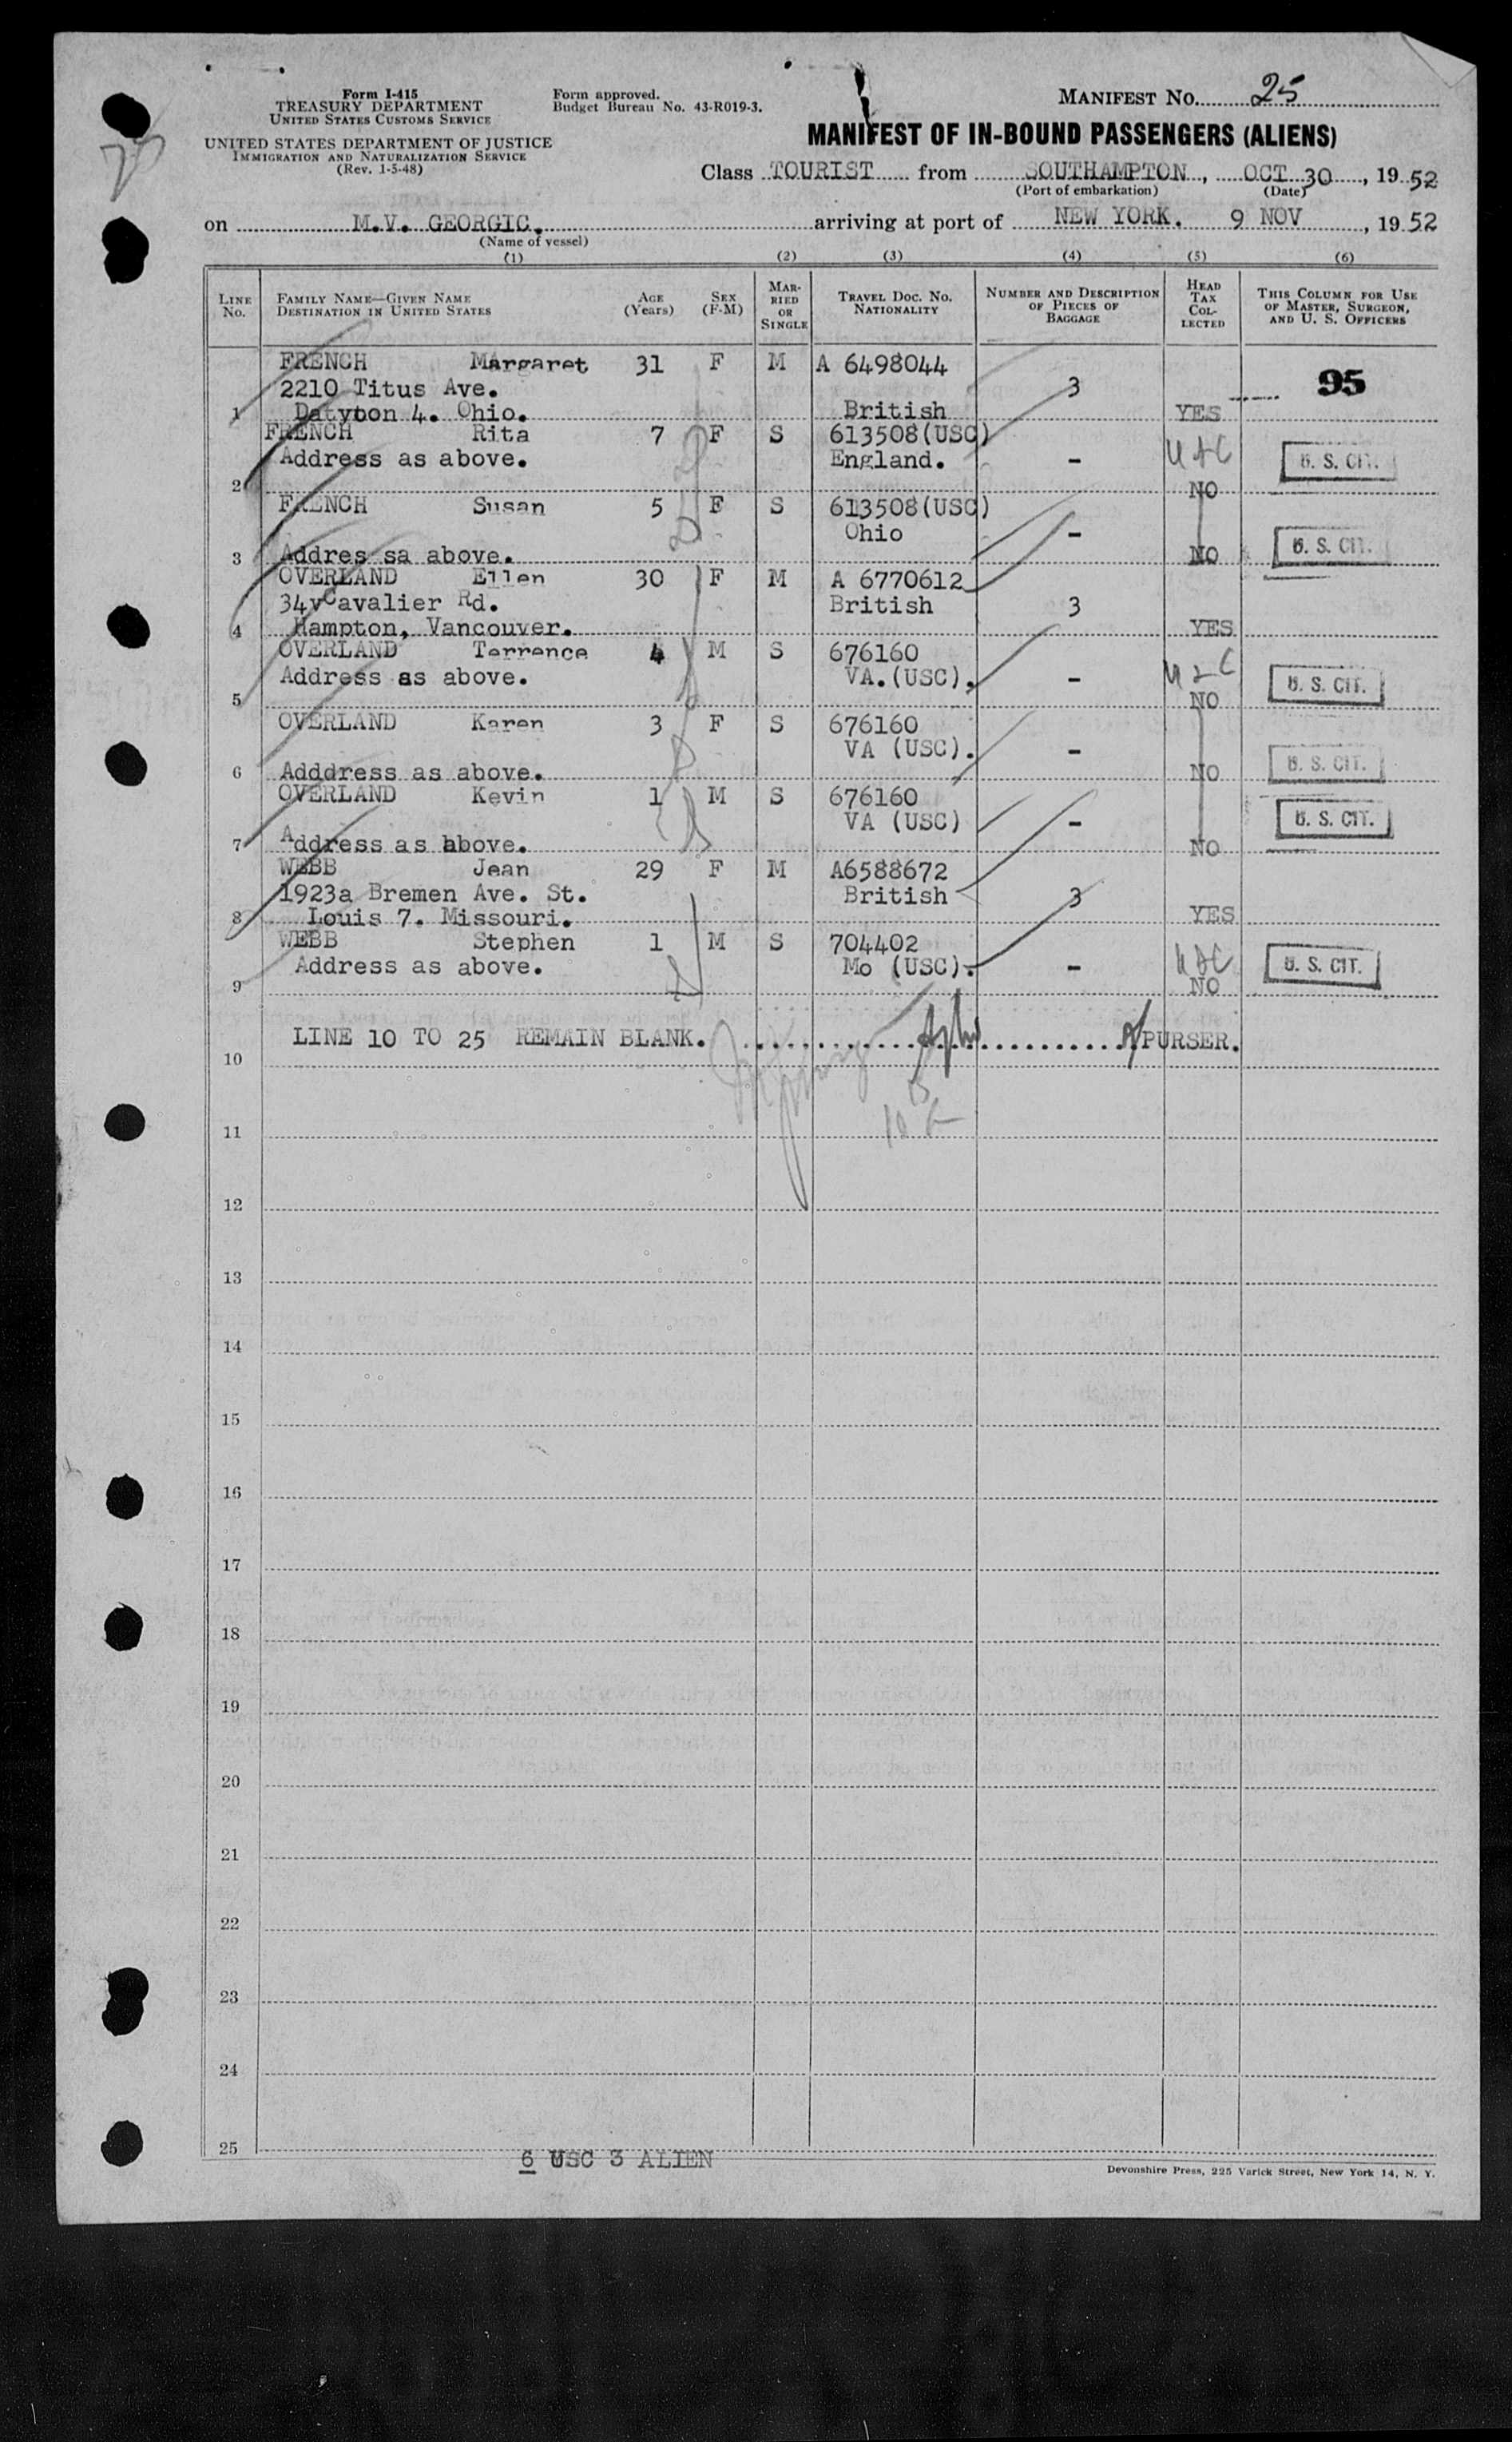 Form I-415
TREASURY DEPARTMENT
UNITED STATES CUSTOMS SERVICE
UNITED STATES DEPARTMENT OF JUSTICE
IMMIGRATION AND NATURALIZATION SERVICE
(Rev. 1-5-48)
Form approved.
Budget Bureau No. 43-R019-3.
MANIFEST No. 25
MANIFEST OF IN-BOUND PASSENGERS (ALIENS)
Class TOURIST from SOUTHAMPTON, OCT 30, 1952
(Port of embarkation) (Date)
on M.V. GEORGIC. arriving at port of NEW YORK. 9 NOV, 1952
(Name of vessel)
(1) (2) (3) (4) (5) (6)
LINE No. FAMILY NAME—GIVEN NAME DESTINATION IN UNITED STATES AGE (Years) SEX (F-M) MARRIED OR SINGLE TRAVEL DOC. NO. NATIONALITY NUMBER AND DESCRIPTION OF PIECES OF BAGGAGE HEAD TAX COLLECTED THIS COLUMN FOR USE OF MASTER, SURGEON, AND U. S. OFFICERS
FRENCH Margaret 31 F M A 6498044
2210 Titus Ave. 3 95
1 Datyton 4. Ohio. British YES
FRENCH Rita 7 F S 613508(USC)
Address as above. England. - U.S. CIT.
2 NO
FRENCH Susan 5 F S 613508(USC)
Ohio - U.S. CIT.
3 Addres sa above. NO
OVERLAND Ellen 30 F M A 6770612
34vCavalier Rd. British 3
4 Hampton, Vancouver. YES
OVERLAND Terrence 4 M S 676160
Address as above. VA.(USC). - U.S. CIT.
5 NO
OVERLAND Karen 3 F S 676160
VA (USC). - U.S. CIT.
6 Adddress as above. NO
OVERLAND Kevin 1 M S 676160
VA (USC) - U.S. CIT.
7 Address as above. NO
WEBB Jean 29 F M A6588672
1923a Bremen Ave. St. British 3
8 Louis 7. Missouri. YES
WEBB Stephen 1 M S 704402
Address as above. Mo (USC). - U.S. CIT.
9 NO
LINE 10 TO 25 REMAIN BLANK. PURSER.
10
11
12
13
14
15
16
17
18
19
20
21
22
23
24
25
6 USC 3 ALIEN
Devonshire Press, 225 Varick Street, New York 14, N. Y.